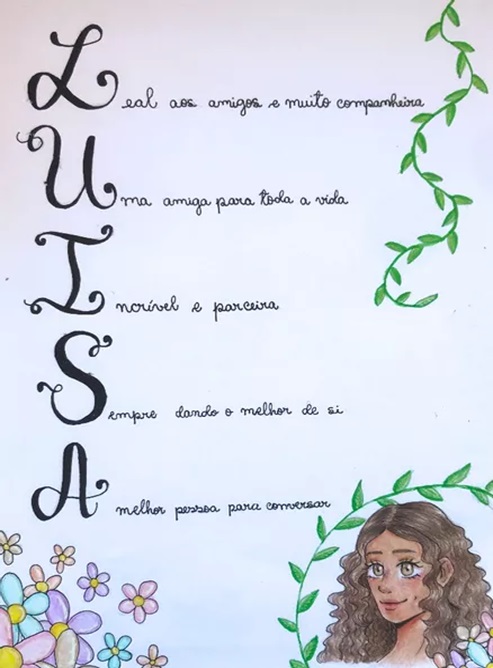 Leal aos amigos e muito companheira
Uma amiga para toda a vida
Incrível e parceira
Sempre dando o melhor de si
A melhor pessoa para conversar